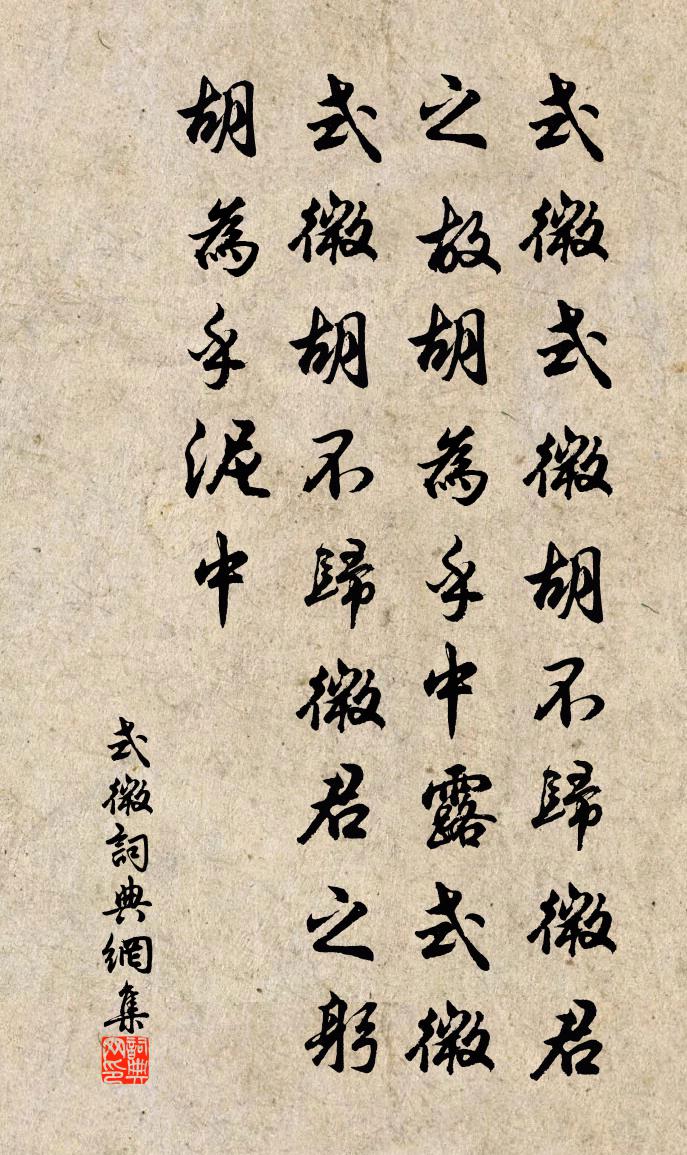 式微式微胡不歸微君
之故胡為乎中露式微
式微胡不歸微君之躬
胡為乎泥中
式微詞典網集
詞典网印